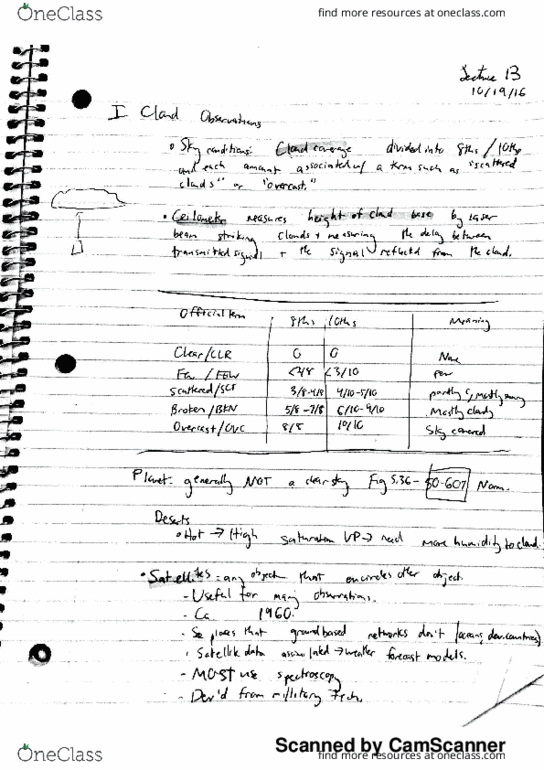 OneClass
find more resources at oneclass.com
Lecture 13
10/19/16
I Cloud Observations
Sky conditions: Cloud coverage divided into 8ths / 10ths
and each amount associated w/ a term such as "scattered
clouds" or "overcast."
• Ceilometer measures height of cloud base by laser
beam striking clouds + measuring the delay between
transmitted signal + the signal reflected from the cloud.
Official term 8ths 10ths Meaning
Clear/CLR 0 0 None
Few / FEW <2/8 <3/10 few
Scattered/SCT 3/8-4/8 4/10-5/10 partly mostly sunny
Broken/BKN 5/8-7/8 6/10-9/10 Mostly cloudy
Overcast/OVC 8/8 10/10 Sky covered
Planet: generally NOT a clear sky Fig 5.36- 50-60% Norm.
Deserts
• Hot → High saturation VP → need more humidity to cloud.
• Satellites: any object that encircles other object.
- Useful for many observations.
- Ca. 1960.
- See places that ground based networks don't (oceans, dev. countries)
• Satellite data assimilated → weather forecast models.
- MOST use spectroscopy
- Dev'd from millitary Tech.
Scanned by CamScanner
OneClass
find more resources at oneclass.com